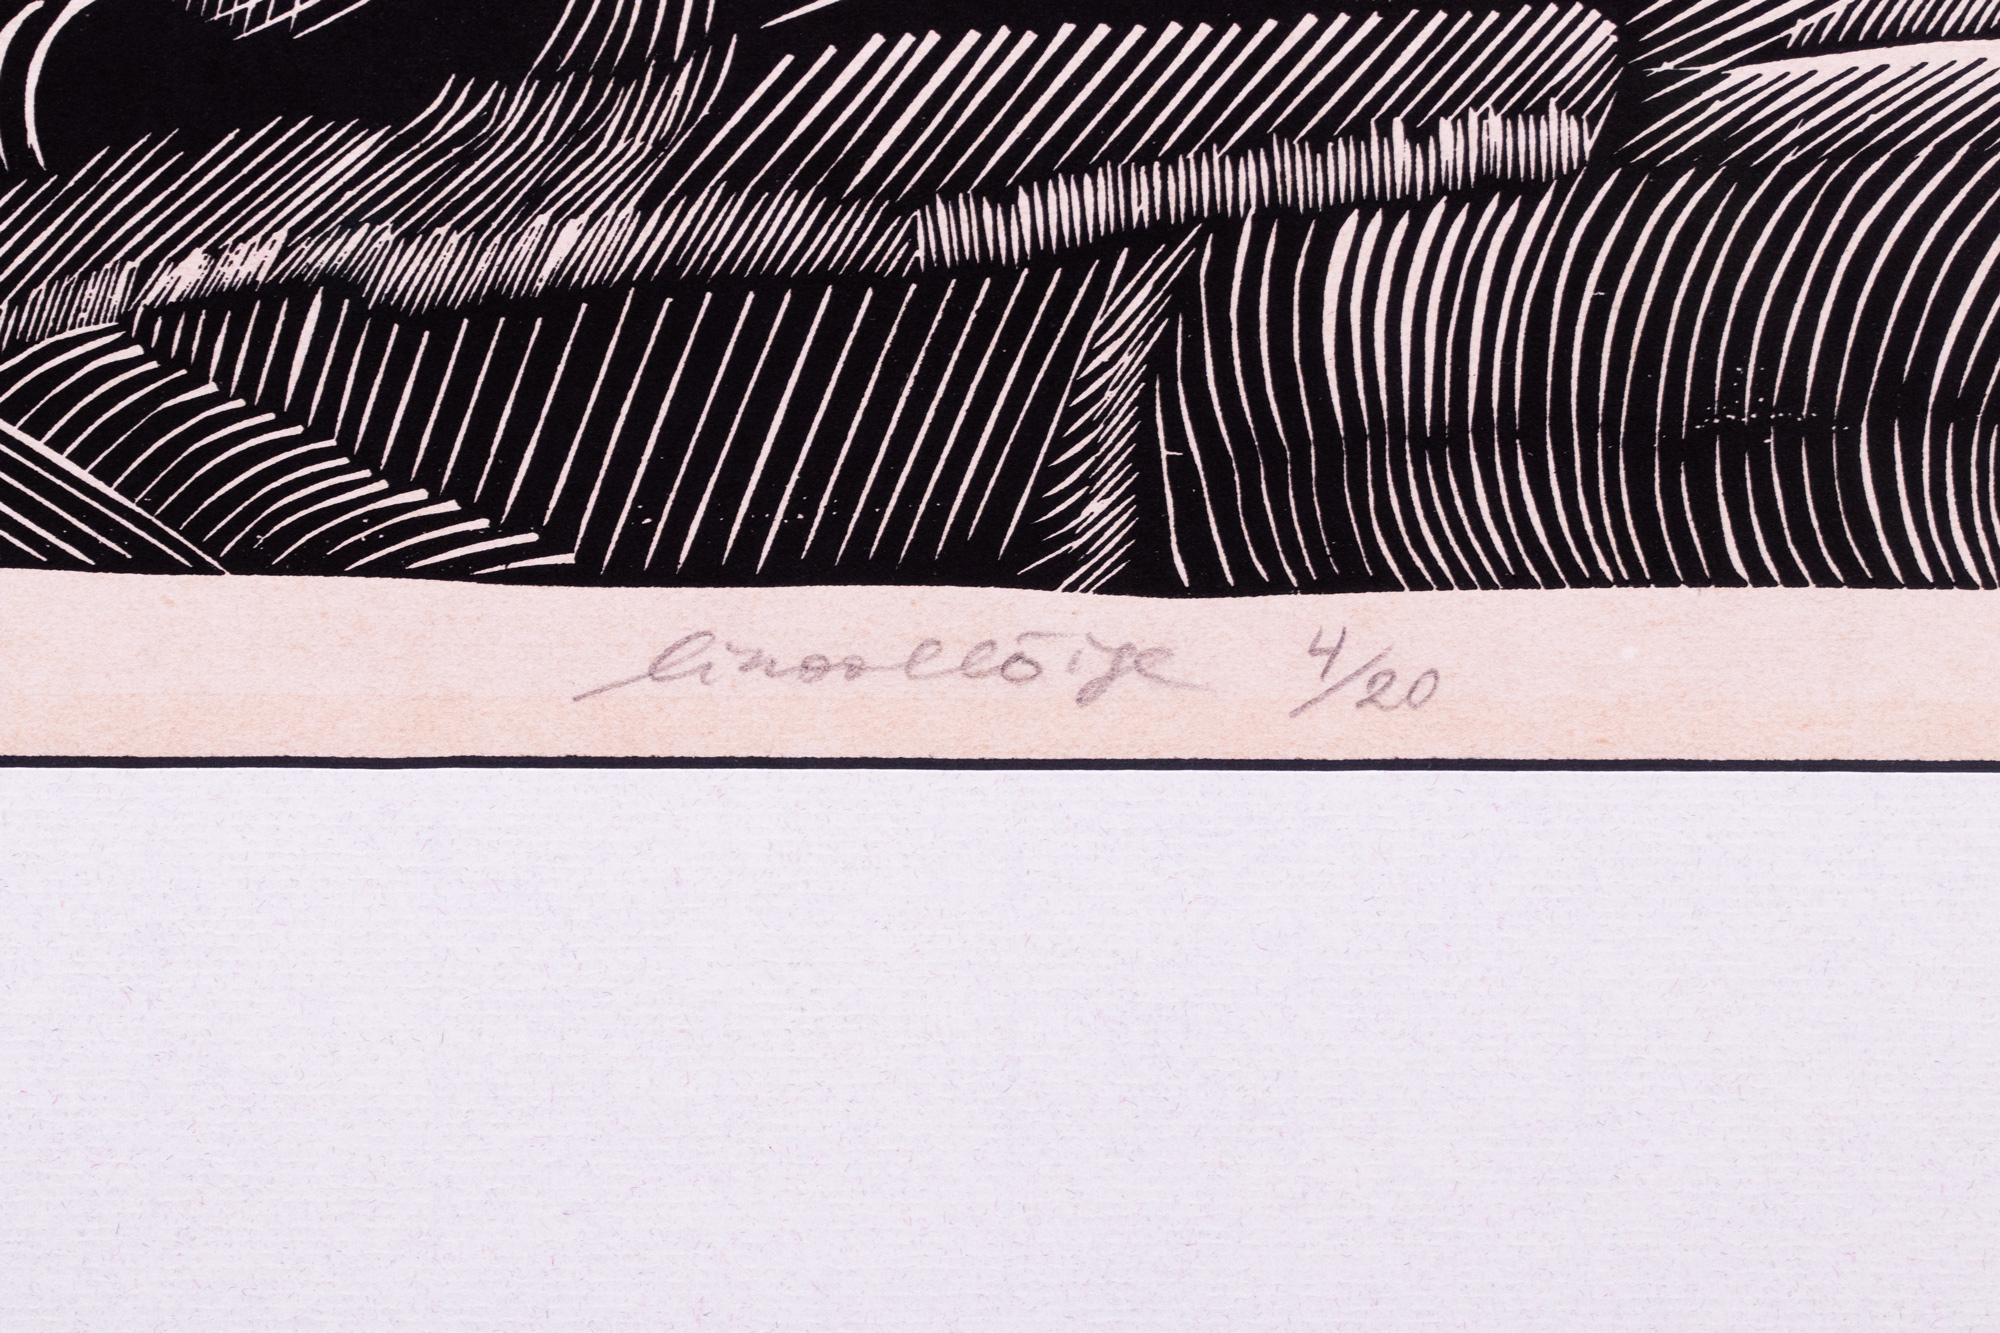 linoollõige 4/20